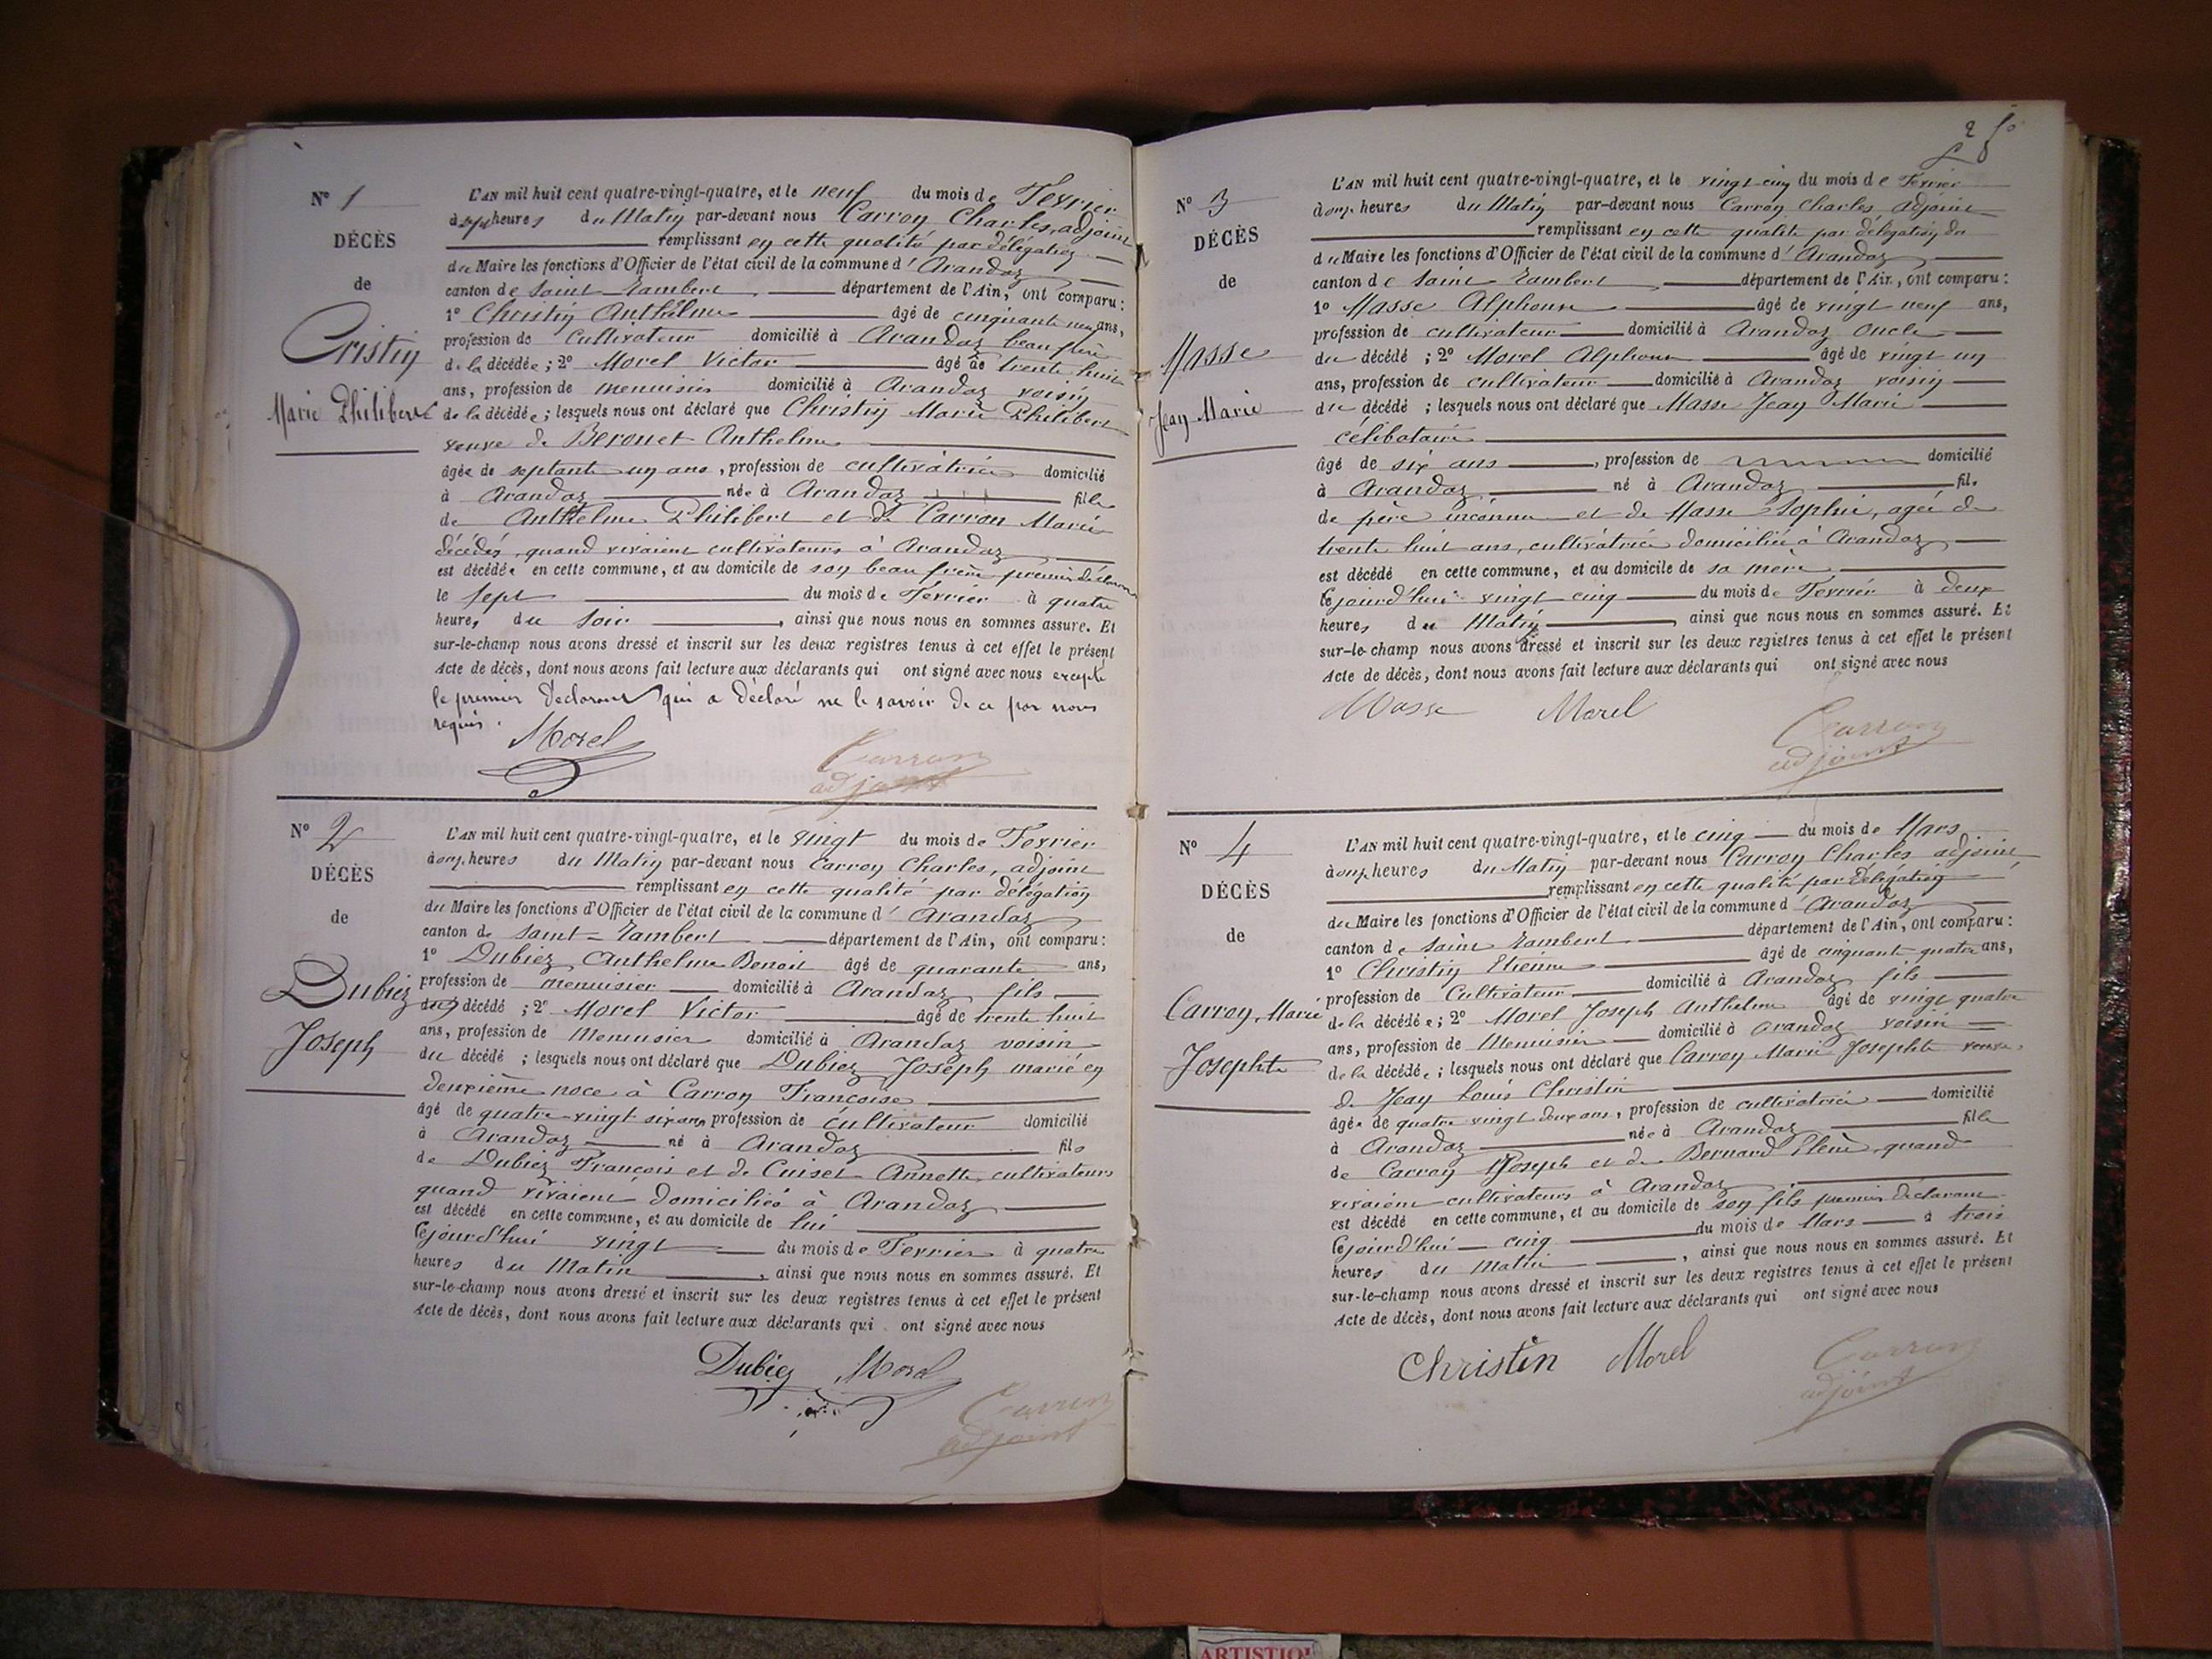 No 1
DÉCÈS
de
Cristin
Marie Philiberte
L'AN mil huit cent quatre-vingt-quatre, et le neuf du mois de Fevrier
à sept heures du Matin par-devant nous Carron Charles, adjoint
remplissant en cette qualité par délégation
du Maire les fonctions d'Officier de l'état civil de la commune d' Arandaz
canton de Saint-Rambert département de l'Ain, ont comparu :
1o Christin Anthelme âgé de cinquante neuf ans,
profession de Cultivateur domicilié à Arandaz beau frère
de la décédée ; 2o Morel Victor âgé de trente huit
ans, profession de menuisier domicilié à Arandaz voisin
de la décédée ; lesquels nous ont déclaré que Christin Marie Philibert
veuve de Beronet Anthelme
âgée de septante un ans, profession de cultivatrice domicilié
à Arandaz née à Arandaz fille
de Anthelme Philibert et de Carron Marie
décédés, quand vivaient cultivateurs à Arandaz
est décédée en cette commune, et au domicile de son beau frère premier déclarant
le sept du mois de Fevrier à quatre
heures du Soir, ainsi que nous nous en sommes assuré. Et
sur-le-champ nous avons dressé et inscrit sur les deux registres tenus à cet effet le présent
Acte de décès, dont nous avons fait lecture aux déclarants qui ont signé avec nous excepté
le premier déclarant qui a déclaré ne le savoir de ce par nous
requis.
Morel Carron
adjoint
No 2
DÉCÈS
de
Dubiez
Joseph
L'AN mil huit cent quatre-vingt-quatre, et le vingt du mois de Fevrier
à onze heures du Matin par-devant nous Carron Charles, adjoint
remplissant en cette qualité par délégation
du Maire les fonctions d'Officier de l'état civil de la commune d' Arandaz
canton de Saint-Rambert département de l'Ain, ont comparu :
1o Dubiez Anthelme Benoit âgé de quarante ans,
profession de menuisier domicilié à Arandaz fils
du décédé ; 2o Morel Victor âgé de trente huit
ans, profession de Menuisier domicilié à Arandaz voisin
du décédé ; lesquels nous ont déclaré que Dubiez Joseph marié en
deuxième noce à Carron Françoise
âgé de quatre vingt six ans, profession de cultivateur domicilié
à Arandaz né à Arandaz fils
de Dubiez François et de Cuiset Annette, cultivateurs
quand vivaient domiciliés à Arandaz
est décédé en cette commune, et au domicile de lui
cejourd'hui vingt du mois de Fevrier à quatre
heures du Matin, ainsi que nous nous en sommes assuré. Et
sur-le-champ nous avons dressé et inscrit sur les deux registres tenus à cet effet le présent
Acte de décès, dont nous avons fait lecture aux déclarants qui ont signé avec nous
Dubiez Morel Carron
adjoint
No 3
DÉCÈS
de
Masse
Jean Marie
L'AN mil huit cent quatre-vingt-quatre, et le vingt-cinq du mois de Fevrier
à onze heures du Matin par-devant nous Carron Charles adjoint
remplissant en cette qualité par délégation du
du Maire les fonctions d'Officier de l'état civil de la commune d' Arandaz
canton de Saint Rambert département de l'Ain, ont comparu :
1o Masse Alphonse âgé de vingt neuf ans,
profession de cultivateur domicilié à Arandaz oncle
du décédé ; 2o Morel Alphonse âgé de vingt un
ans, profession de cultivateur domicilié à Arandaz voisin
du décédé ; lesquels nous ont déclaré que Masse Jean Marie
célibataire
âgé de six ans, profession de domicilié
à Arandaz né à Arandaz fils
de père inconnu et de Masse Sophie, agée de
trente huit ans, cultivatrice domiciliée à Arandaz
est décédé en cette commune, et au domicile de sa mère
cejourd'hui vingt cinq du mois de Fevrier à deux
heures du Matin, ainsi que nous nous en sommes assuré. Et
sur-le-champ nous avons dressé et inscrit sur les deux registres tenus à cet effet le présent
Acte de décès, dont nous avons fait lecture aux déclarants qui ont signé avec nous
Masse Morel Carron
adjoint
No 4
DÉCÈS
de
Carron, Marie
Josephte
L'AN mil huit cent quatre-vingt-quatre, et le cinq du mois de Mars
à onze heures du Matin par-devant nous Carron Charles adjoint
remplissant en cette qualité par délégation
du Maire les fonctions d'Officier de l'état civil de la commune d' Arandaz
canton de Saint Rambert département de l'Ain, ont comparu :
1o Christin Etienne âgé de cinquante quatre ans,
profession de Cultivateur domicilié à Arandaz fils
de la décédée ; 2o Morel Joseph Anthelme âgé de vingt quatre
ans, profession de Menuisier domicilié à Arandaz voisin
de la décédée ; lesquels nous ont déclaré que Carron Marie Josephte veuve
de Jean Louis Christin
âgée de quatre vingt deux ans, profession de cultivatrice domicilié
à Arandaz née à Arandaz fille
de Carron Joseph et de Bernard Elene, quand
vivaient cultivateurs à Arandaz
est décédé en cette commune, et au domicile de son fils premier déclarant
cejourd'hui cinq du mois de Mars à trois
heures du Matin, ainsi que nous nous en sommes assuré. Et
sur-le-champ nous avons dressé et inscrit sur les deux registres tenus à cet effet le présent
Acte de décès, dont nous avons fait lecture aux déclarants qui ont signé avec nous
Christin Morel Carron
adjoint